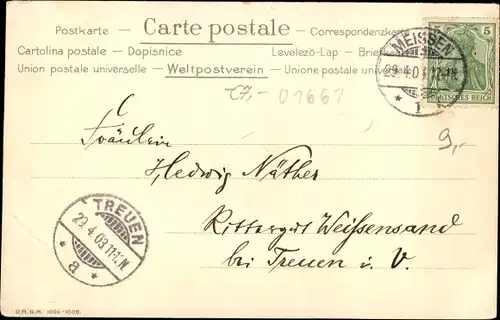 Postkarte — Carte postale — Correspondenzkarte
Cartolina postale — Dopisnice Levelezö-Lap — Brief
Union postale universelle — Weltpostverein — Unione postale universale
MEISSEN
29.4.03
1
5
DEUTSCHES REICH
C7,- 01667
9,-
Fräulein
Hedwig Näther
Rittergut Weissensand
bei Treuen i. V.
TREUEN
29.4.03. 11-12N.
* a *
D.R.G.M.